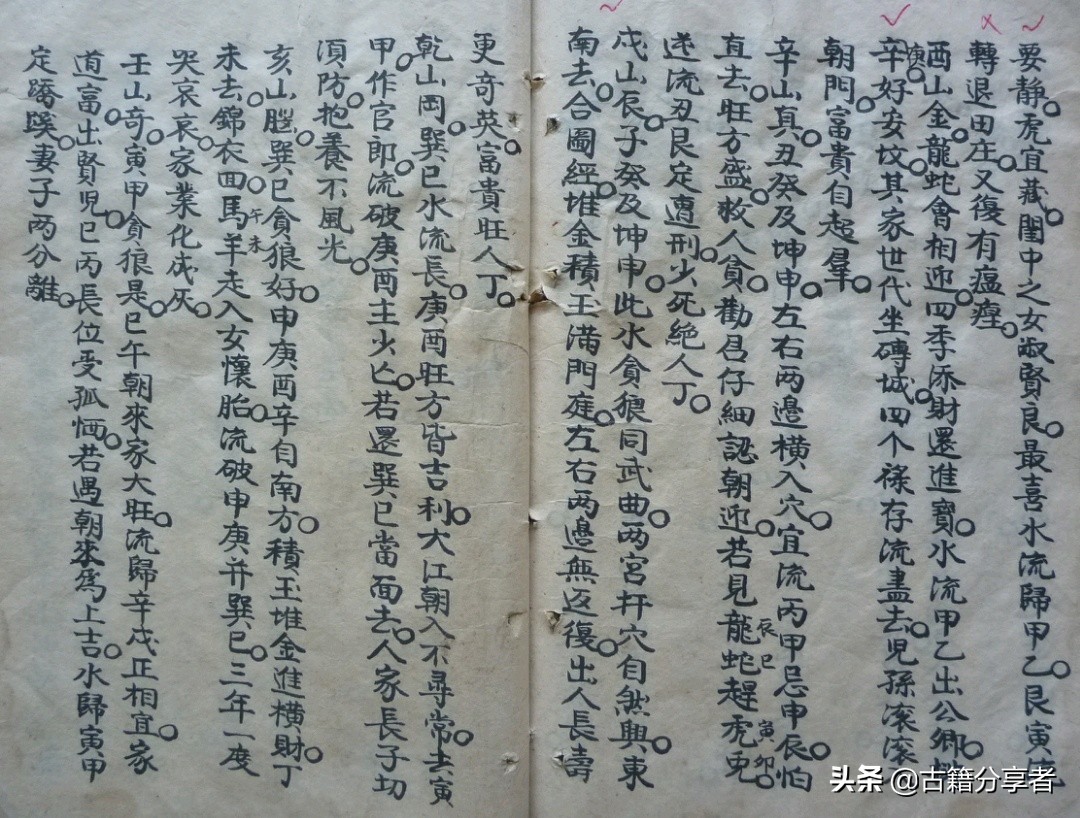 要静。虎宜藏。閨中之女淑賢良。最喜水流歸甲乙。艮寅流
轉退田庄。又復有瘟㾮。
酉山金。龍蛇會相迎。四季添財還進寶。水流甲乙出公卿。
辛好安坟。其家世代坐磚城。四个祿存流盡去。児孫滾滾
朝門。富貴自起羣。
辛山真。丑癸及坤申。左右两邊橫入穴。宜流丙甲忌申辰。怕
直去。旺方盛。救人貧。勸君仔細認朝迎。若見龍蛇趕虎兎
辰巳
寅卯
送流丑艮定遭刑。少死絕人丁。
戌山辰。子癸及坤申。此水貪狼同武曲。两宮拝穴自然興。東
南去。合圖經。堆金積玉滿門庭。左右两邊無返復。出人長壽
更奇英。富貴旺人丁。
乾山岡。巽巳水流長。庚酉旺方皆吉利。大江朝入不尋常。去寅
甲。作官郎。流破庚酉主少亡。若還巽巳當面去。人家長子切
須防。抱養不風光。
亥山
巽巳貪狼好。申庚酉辛自南方。積玉堆金進橫財。丁
未去。錦衣
四馬羊走入女懷胎。流破申庚并巽巳。三年一度
午未
哭哀哀。家業化成灰。
壬山奇。寅甲貪狼是。巳午朝來家大旺。流歸辛戌正相宜。家
道富。出賢児。巳丙長位受孤恓。若遇朝來爲上吉。水歸寅甲
定蹺蹊。妻子两分離。
头条 @古籍分享者